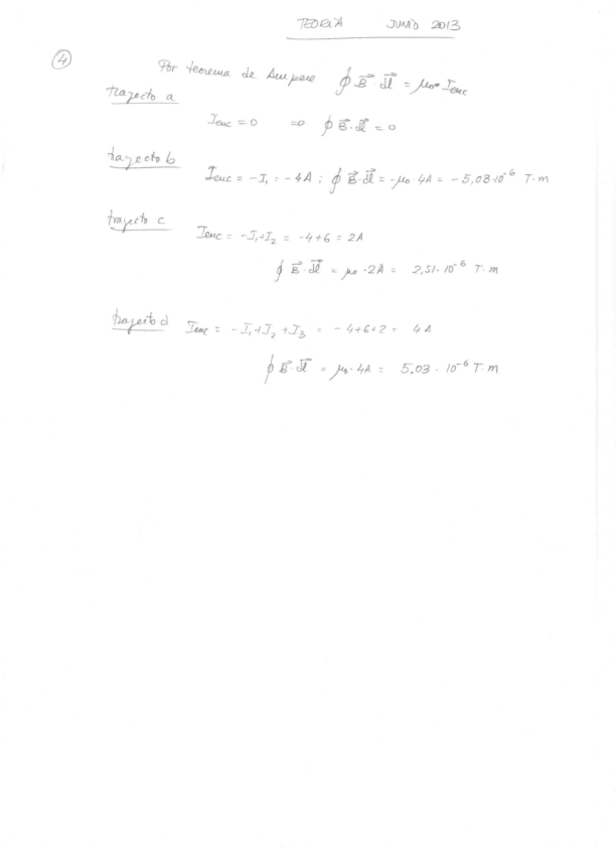 TEORIA JUNIO 2013
④ Por teorema de Ampere ∮ B⃗ · dl⃗ = μ₀ · Ienc
trayecto a
Ienc = 0 ⇒ ∮ B⃗ · dl⃗ = 0
trayecto b
Ienc = -I₁ = -4A ; ∮ B⃗ · dl⃗ = -μ₀ 4A = -5,03·10⁻⁶ T·m
trayecto c
Ienc = -I₁+I₂ = -4+6 = 2A
∮ B⃗ · dl⃗ = μ₀ · 2A = 2,51 · 10⁻⁶ T·m
trayecto d Ienc = -I₁+I₂+I₃ = -4+6+2 = 4A
∮ B⃗ · dl⃗ = μ₀ · 4A = 5.03 · 10⁻⁶ T·m